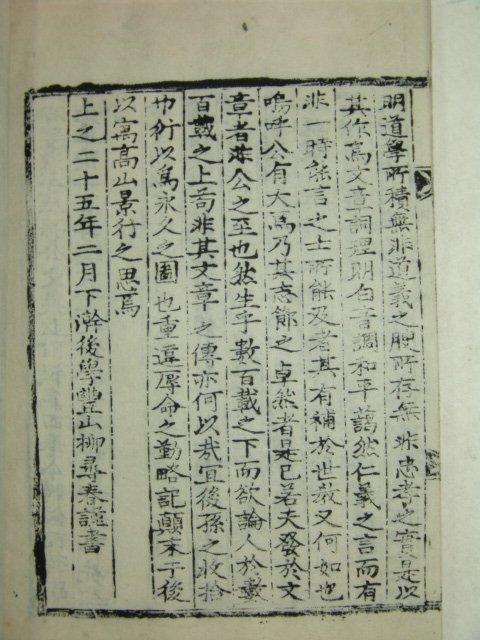 明道學所積無非道義之腴所存無非忠孝之實是以
其作爲文章詞理明白音調和平藹然仁義之言而有
非一時能言之士所能及者其有補於世敎又何如也
嗚呼公有大焉乃其志節之卓然者是已若夫發於文
章者非公之至也然生乎數百載之下而欲論人於數
百載之上苟非其文章之傳亦何以哉宜後孫之收拾
也所以爲永久之圖也重違辱命之勤略記顚末于後
以寓高山景行之思焉
上之二十五年二月下澣後學豐山柳尋春謹書